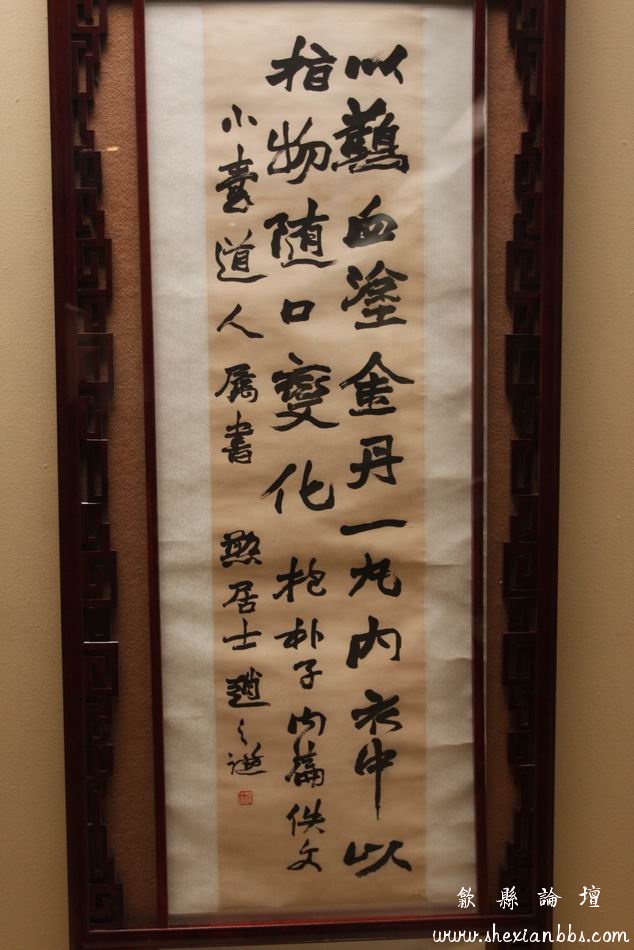 以鷄血塗金丹一丸內衣中以
指物随口變化抱朴子内篇佚文
小臺道人属書 憨居士趙之謙
歙縣論壇
www.shexianbbs.com